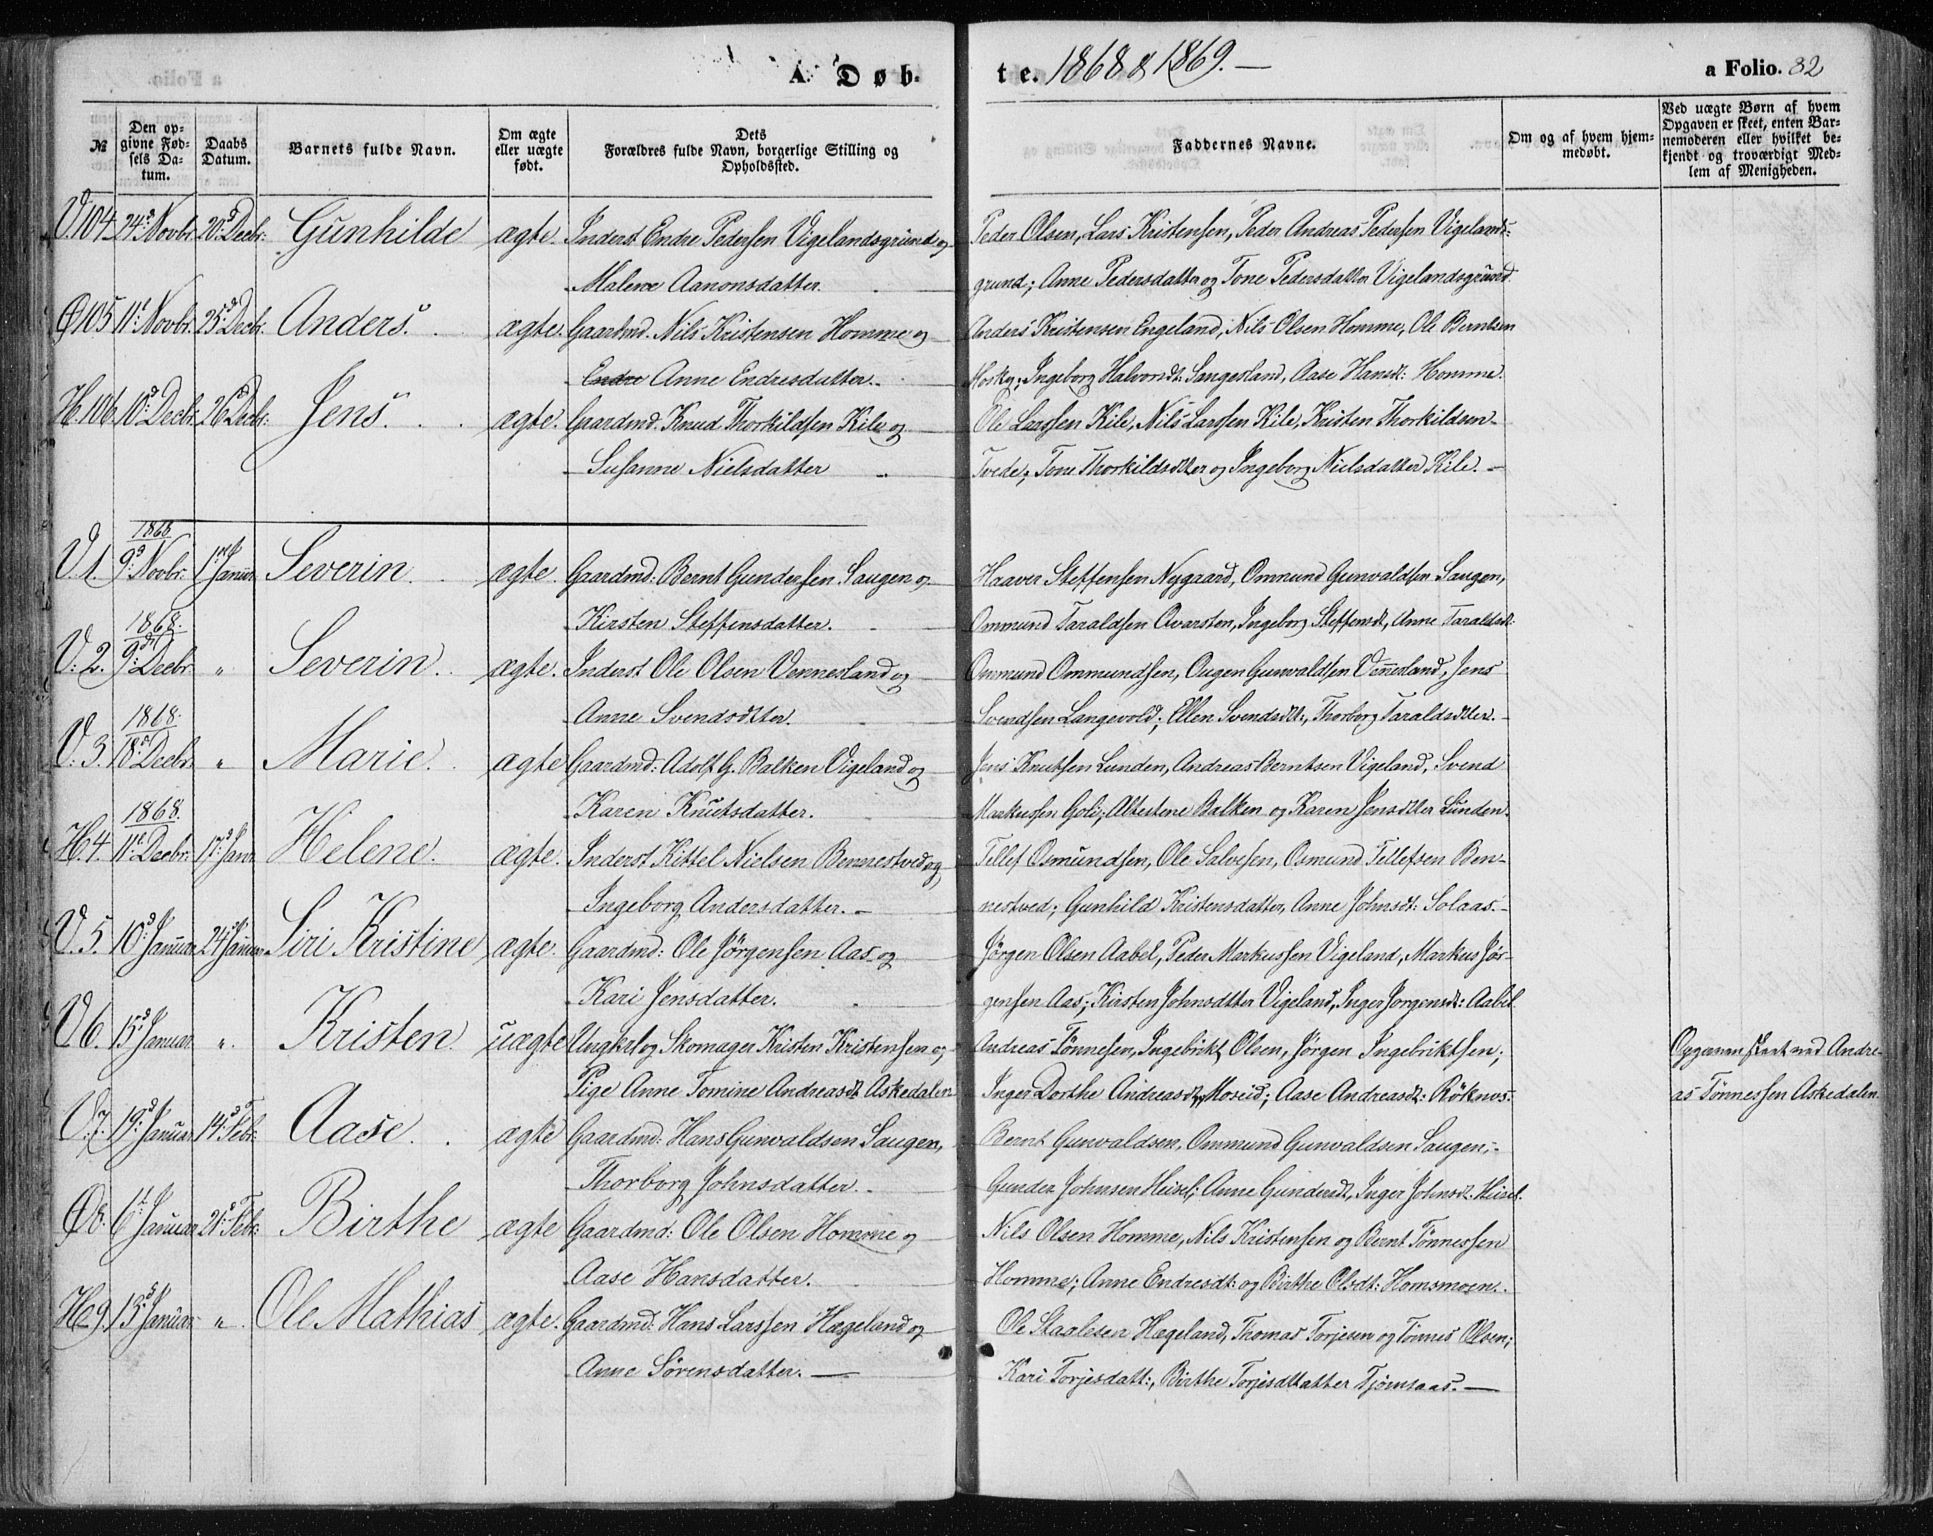 A. Døb-
te. 1868 & 1869. —
a Folio. 82
№
Den op-
givne Fød-
sels Da-
tum.
Daabs
Datum.
Barnets fulde Navn.
Om ægte
eller uægte
født.
Dets
Forældres fulde Navn, borgerlige Stilling og
Opholdssted.
Faddernes Navne.
Om og af hvem hjem-
medøbt.
Ved uægte Børn af hvem
Opgaven er skeet, enten Bar-
nemoderen eller hvilket be-
kjendt og troværdigt Med-
lem af Menigheden.
V. 104. 24d: Novbr. 20d: Decbr. Gunhilde ægte. Inderst Endre Pedersen Vigelandsgrund og Peder Olsen, Lars Kristensen, Peder Andreas Pedersen Vigelands-
Malene Aanonsdatter. grund; Anne Pedersdatter og Tone Pedersdatter Vigelandsgrund
Ø 105 11te Novbr. 25d: Decbr. Anders. ægte. Gaardmd. Nils Kristensen Homme og Anders Kristensen Engeland, Nils Olsen Homme, Ole Berntsen
Endre Anne Endresdatter. Ingeborg Halvordt: Sangesland, Aase Hansdt: Homme.
H. 106. 10d: Decbr. 26d Decbr: Jens. ægte. Gaardmd. Knud Thorkildsen Kile og Ole Larssen Kile, Nils Larssen Kile, Kristen Thorkildsen
Susanne Nielsdatter Tvede; Tone Thorkildsdtter og Ingeborg Nielsdatter Kile. —
1868.
V. 1. 9d: Novbr. 1ste Januar Severin. ægte. Gaardmd: Bernt Gundersen Saugen og Haaver Steffensen Nygaard, Ommund Gunvaldsen Saugen,
Kirsten Steffensdatter. Ommund Taraldsen Qvarsten, Ingeborg Steffensdt, Anne Taraldsdt:
1868.
V: 2. 9de Decbr. " Severin. ægte. Inderst Ole Olsen Vennesland og Ommund Ommundsen, Ougen Gunvaldsen Vennesland, Jens
Anne Svendsdtter. Svendsen Langevold; Ellen Svendsdt:, Thorborg Taraldsdtter.
1868.
V: 3. 18de Decbr. " Marie. ægte Gaardmd: Adolf G. Balken Vigeland og Jens Knutsen Lunden, Andreas Berntsen Vigeland, Svend
Karen Knutsdatter. Markussen Goli; Balken og Karen Jensdtter Lunden.
1868.
H. 4. 11te Decbr. 17d: Janr. Helene. ægte. Inderst Kittel Nielsen Bennestved og Tellef Osmundsen, Ole Salvesen, Osmund Tellefsen Ben-
Ingeborg Andersdatter. — nestved; Gunhild Kristensdatter, Anne Johnsdt: Solaas. —
V. 5. 10d: Januar 24d Januar Siri Kristine ægte. Gaardmd: Ole Jörgensen Aas og Jörgen Olsen Aabel, Peder Markussen Vigeland, Markus Jör-
Kari Jensdatter. gensen Aas; Kirsten Johnsdtter Vigeland, Inger Jorgensdt: Aabel
V 6. 15d: Januar ". Kristen uægte Ungkrl og Skomager Kristen Kristensen og Andreas Tönnesen, Ingebrikt Olsen, Jörgen Ingebriktsen; Opgaven skeet ved Andre-
Pige Anne Tomine Andreasdt. Askedalen Inger Dorthe Andreasdt, Moseid; Aase Andreasdt: Röknes as Tönnessen Askedalen.
V. 7. 19d: Januar 14d: Febr: Aase. ægte Gaardmd: Hans Gunvaldsen Saugen, Bernt Gunvaldsen, Ommund Gunvaldsen Saugen,
Thorborg Johnsdatter. Gunder Johnsen Heisel; Anne Gundersdt, Inger Johnsdt. Heisel.
Ø 8. 6te Januar 21d: Febr: Birthe ægte Gaardmd: Ole Olsen Homme og Nils Olsen Homme, Nils Kristensen og Bernt Tönnessen
Aase Hansdatter. Homme; Anne Endresdt: og Birthe Olsdt: Homsmoen.
H. 9. 13d Januar " Ole Mathias ægte. Gaardmd: Hans Larssen Hægeland og Ole Staalesen Hægeland, Thomas Torjesen og Tönnes Olsen;
Anne Sörensdatter. — Kari Torjesdatt:, Birthe Torjesdtatter Tjomsaas. —